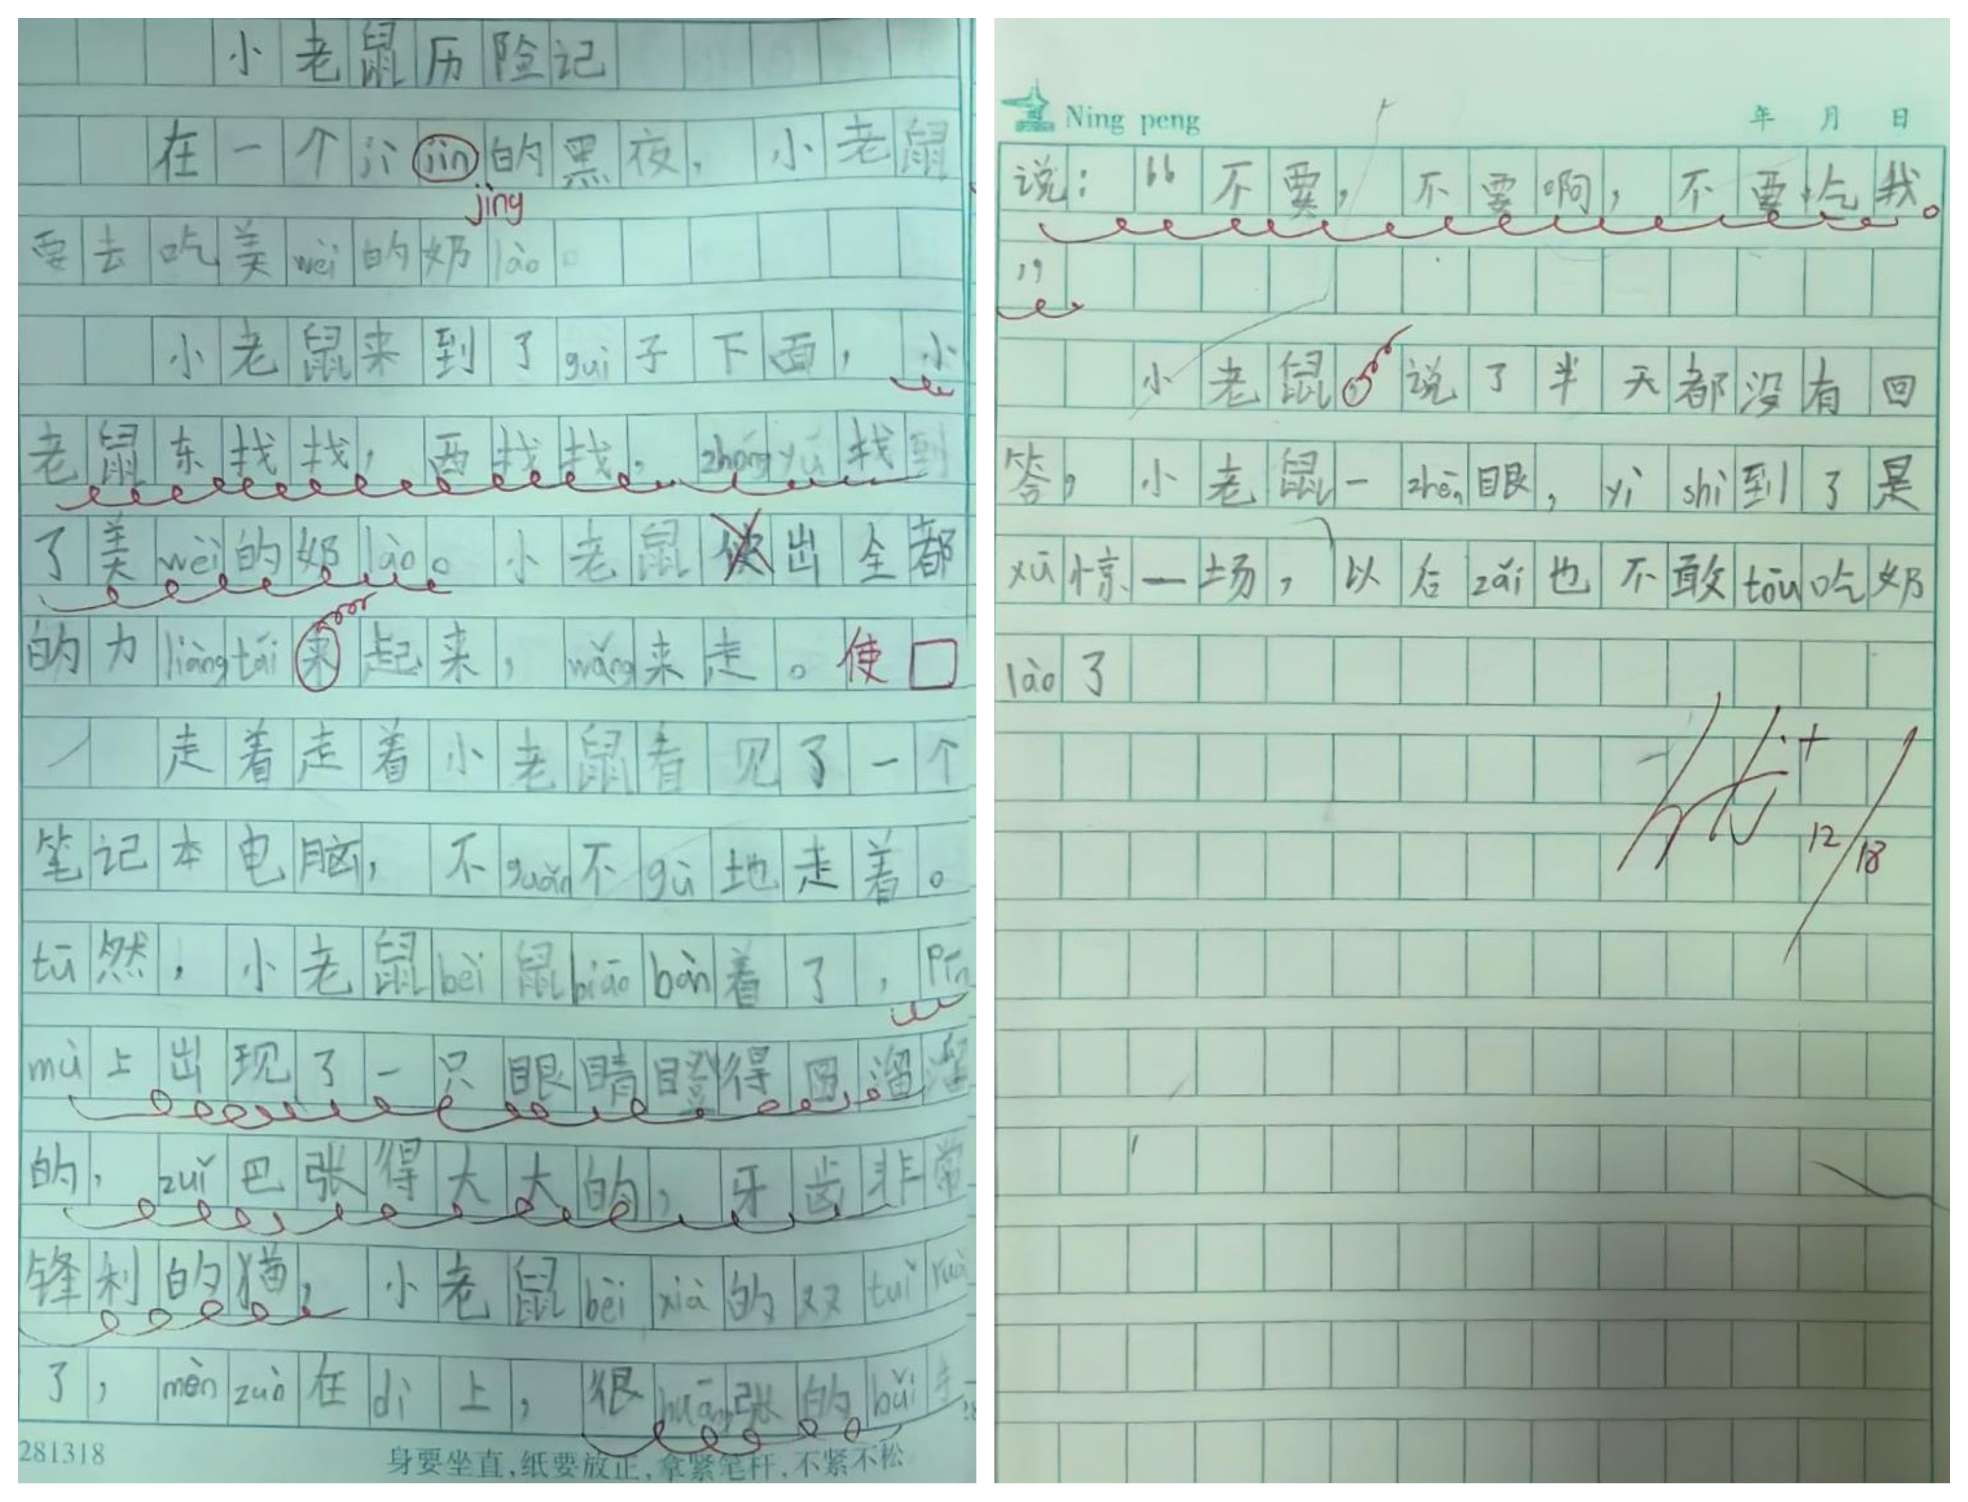 小老鼠历险记
在一个jì jin的黑夜，小老鼠
jìng
要去吃美wèi的奶lào。
小老鼠来到了guì子下面，小
老鼠东找找，西找找，zhōng yú找到
了美wèi的奶lào。小老鼠使出全都
的力liàng tái来起来，wǎng来走。使
走着走着小老鼠看见了一个
笔记本电脑，不guǎn不gù地走着。
tū然，小老鼠bèi鼠biāo bàn着了，Pín
mù上出现了一只眼睛瞪得圆溜溜
的，zuǐ巴张得大大的，牙齿非常
锋利的猫，小老鼠bèi xià的双tuǐ ruǎ
了，mèn zuò在dì上，很huāng张的
281318
身要坐直，纸要放正，拿紧笔杆，不紧不松
Ning peng
年 月 日
说：“不要，不要啊，不要吃我。
”
小老鼠，说了半天都没有回
答，小老鼠一zhēn眼，yì shí到了是
xū惊一场，以后zài也不敢tōu吃奶
lào了
优+
12/18